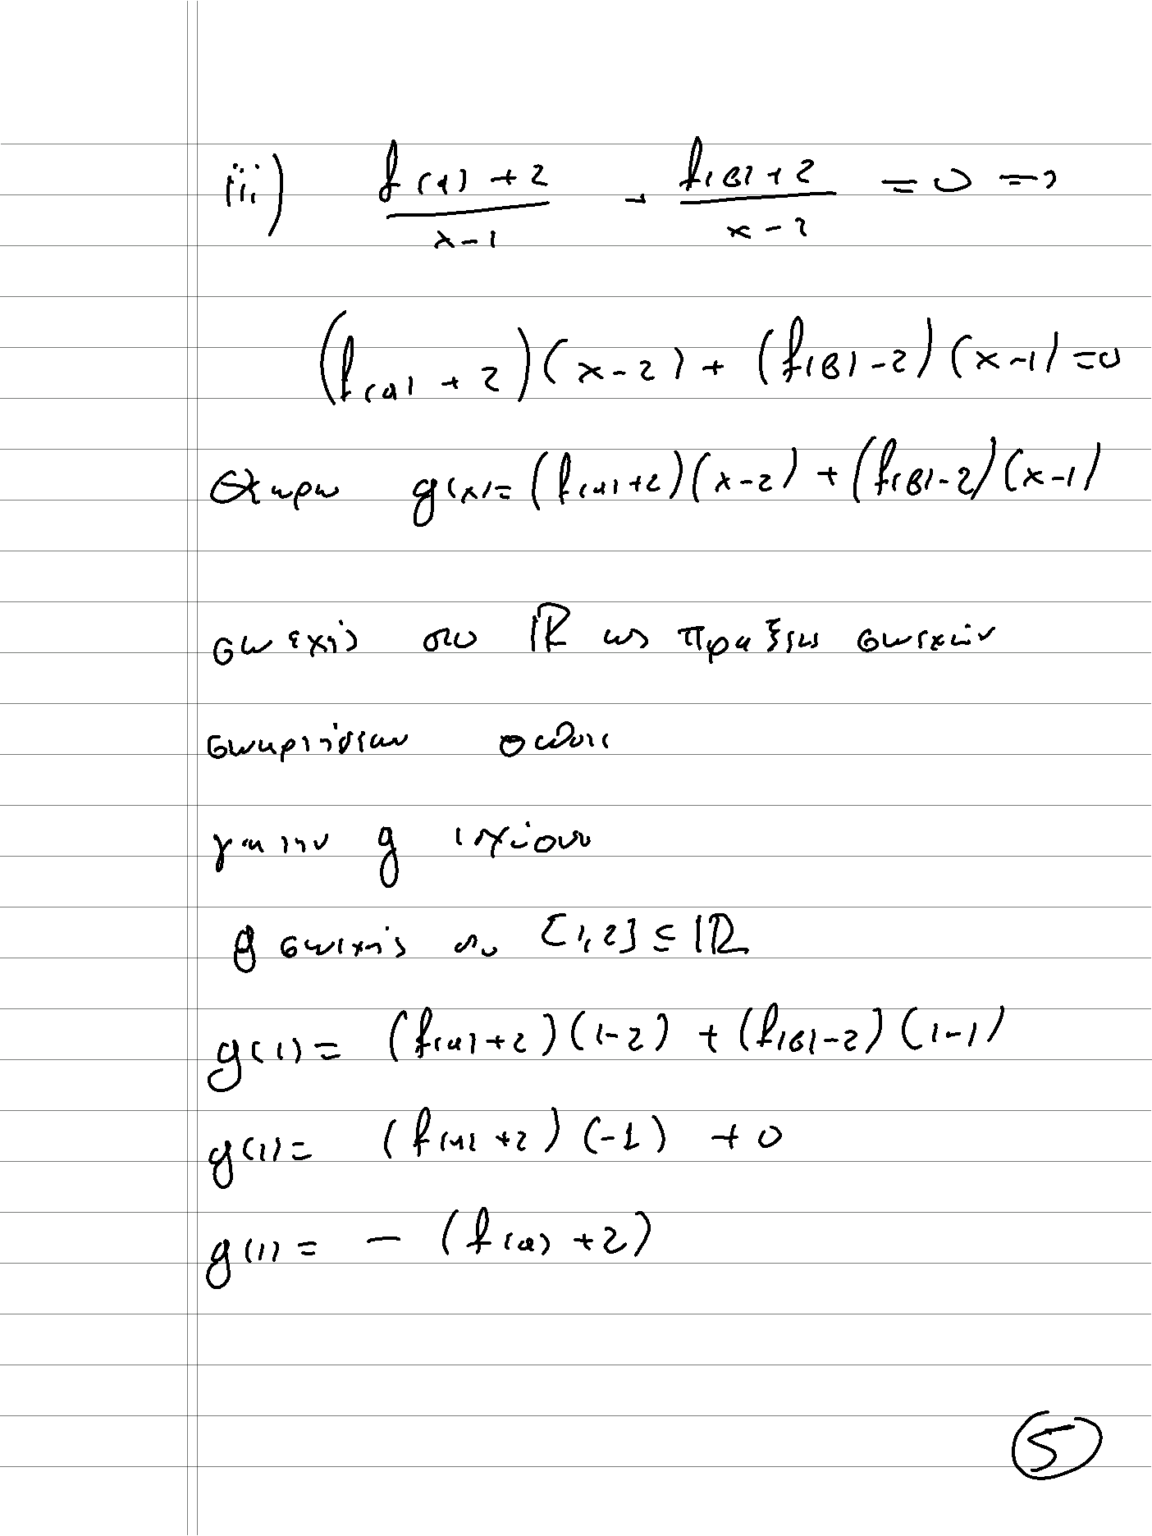 iii) f(α)+2 / x-1 + f(β)+2 / x-2 = 0 =>
(f(α)+2)(x-2)+(f(β)-2)(x-1)=0
Θεωρω g(x)=(f(α)+2)(x-2)+(f(β)-2)(x-1)
συνεχής στο ℝ ως πράξεις συνεχών
συναρτήσεων
για την g ισχύουν
g συνεχής στο [1,2]⊆ℝ
g(1)= (f(α)+2)(1-2)+(f(β)-2)(1-1)
g(1)= (f(α)+2)(-1)+0
g(1)= -(f(α)+2)
5